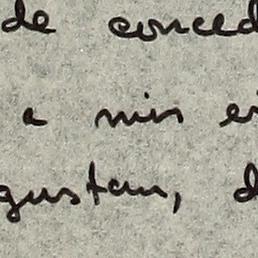 de conced
a min ei
gustan, d